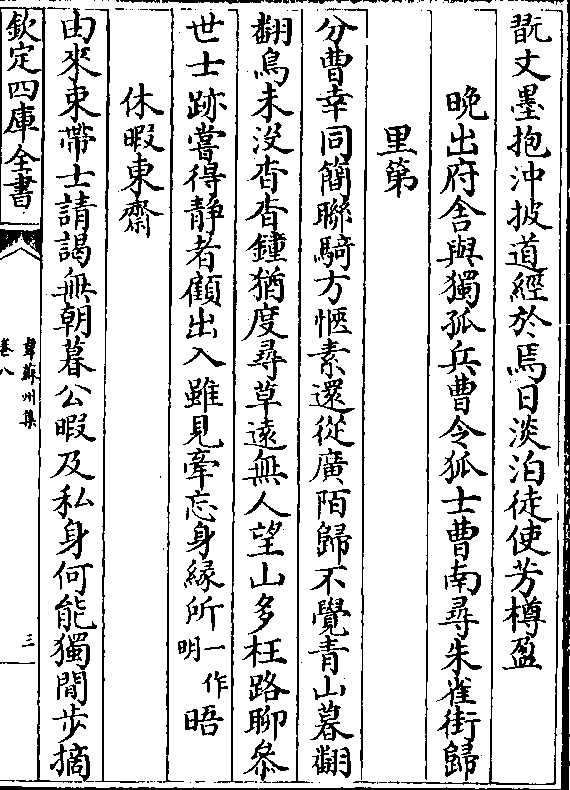 翫文墨抱沖披道經於焉日淡泊徒使芳樽盈
晚出府舍與獨孤兵曹令狐士曹南尋朱雀街歸
里第
分曹幸同簡聯騎方愜素還從廣陌歸不覺青山暮翻
翻鳥未沒杳杳鐘猶度尋草遠無人望山多枉路聊參
世士跡嘗得靜者顧出入雖見牽忘身緣所一作明晤
休暇東齋
由來束帶士請謁無朝暮公暇及私身何能獨閒步摘
欽定四庫全書
韋蘇州集
卷八
三